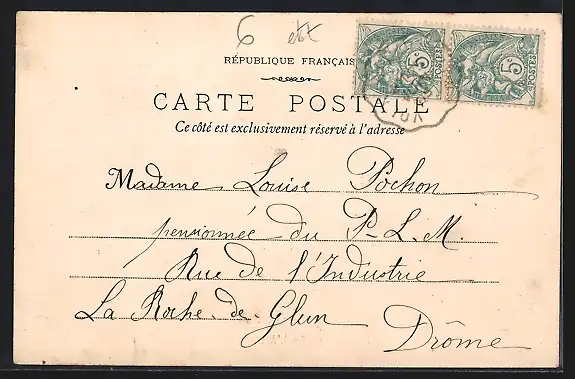 6 ext
RÉPUBLIQUE FRANÇAIS
CARTE POSTALE
Ce côté est exclusivement réservé à l'adresse
5 POSTES
5 POSTES
Madame Louise Pochon
pensionnée du P-L-M
Rue de l'Industrie
La Roche-de-Glun
Drôme